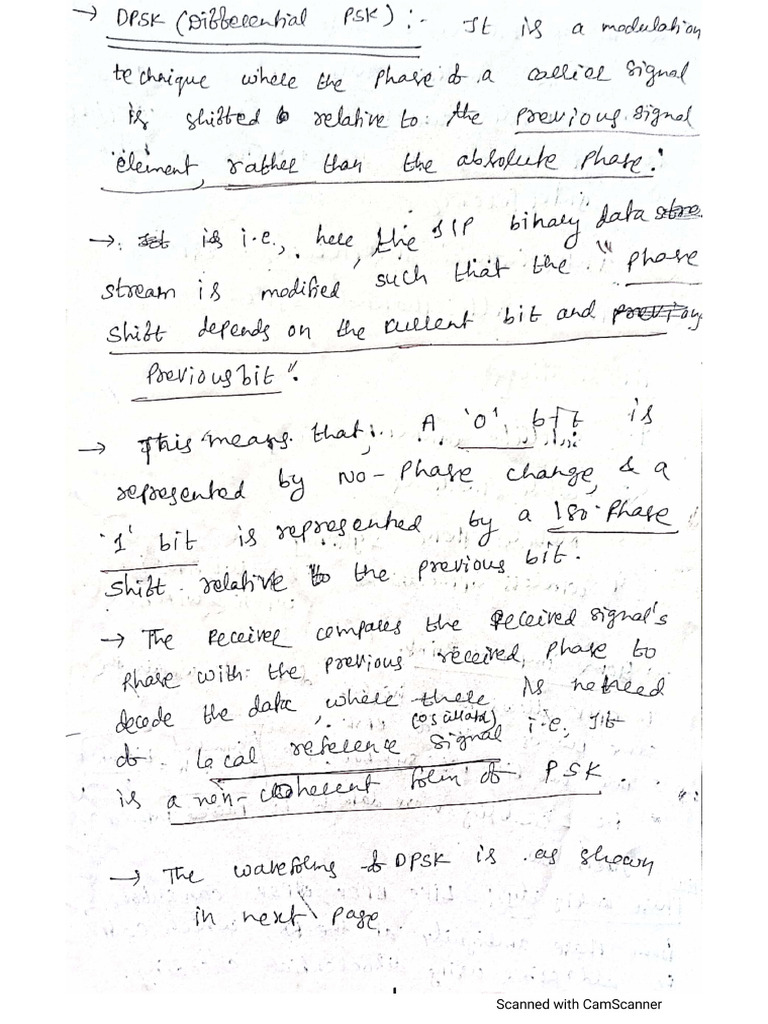 → DPSK (Differential PSK) :- It is a modulation
technique where the phase of a carrier signal
is shifted relative to the previous signal
element, rather than the absolute phase.
→ is i.e., here, the I/P binary data
stream is modified such that the "phase
shift depends on the current bit and
previous bit".
→ This means that, A '0' bit is
represented by NO-Phase change, & a
'1' bit is represented by a 180 Phase
shift relative to the previous bit.
→ The Receiver compares the Received signal's
Phase with the previous received, phase to
decode the data, where there is no need
(oscillator)
of local reference signal i.e, It
is a non-coherent form of PSK.
→ The waveforms of DPSK is as shown
in next page
Scanned with CamScanner